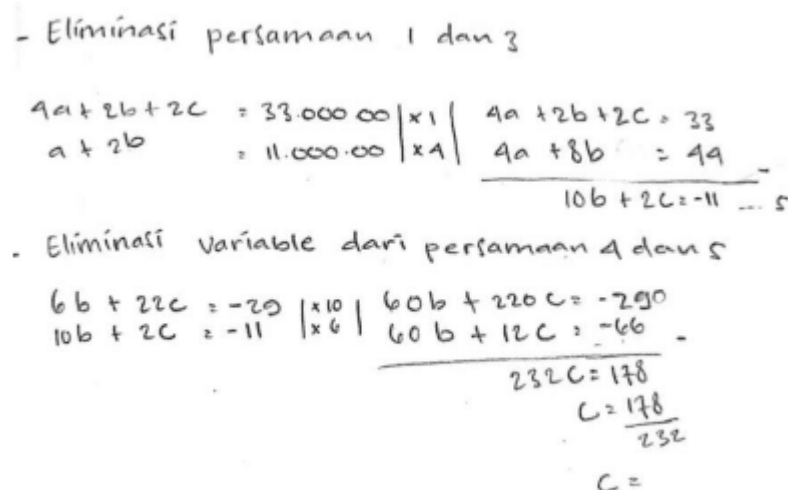 - Eliminasi persamaan 1 dan 3
4a + 2b + 2c = 33.000.00 | x 1 | 4a + 2b + 2c = 33
a + 2b = 11.000.00 | x 4 | 4a + 8b = 44 -
10b + 2c = -11 ... 5
- Eliminasi variable dari persamaan 4 dan 5
6b + 22c = -29 | x 10 | 60b + 220c = -290
10b + 2c = -11 | x 6 | 60b + 12c = -66 -
232c = 178
c = 178
232
c =